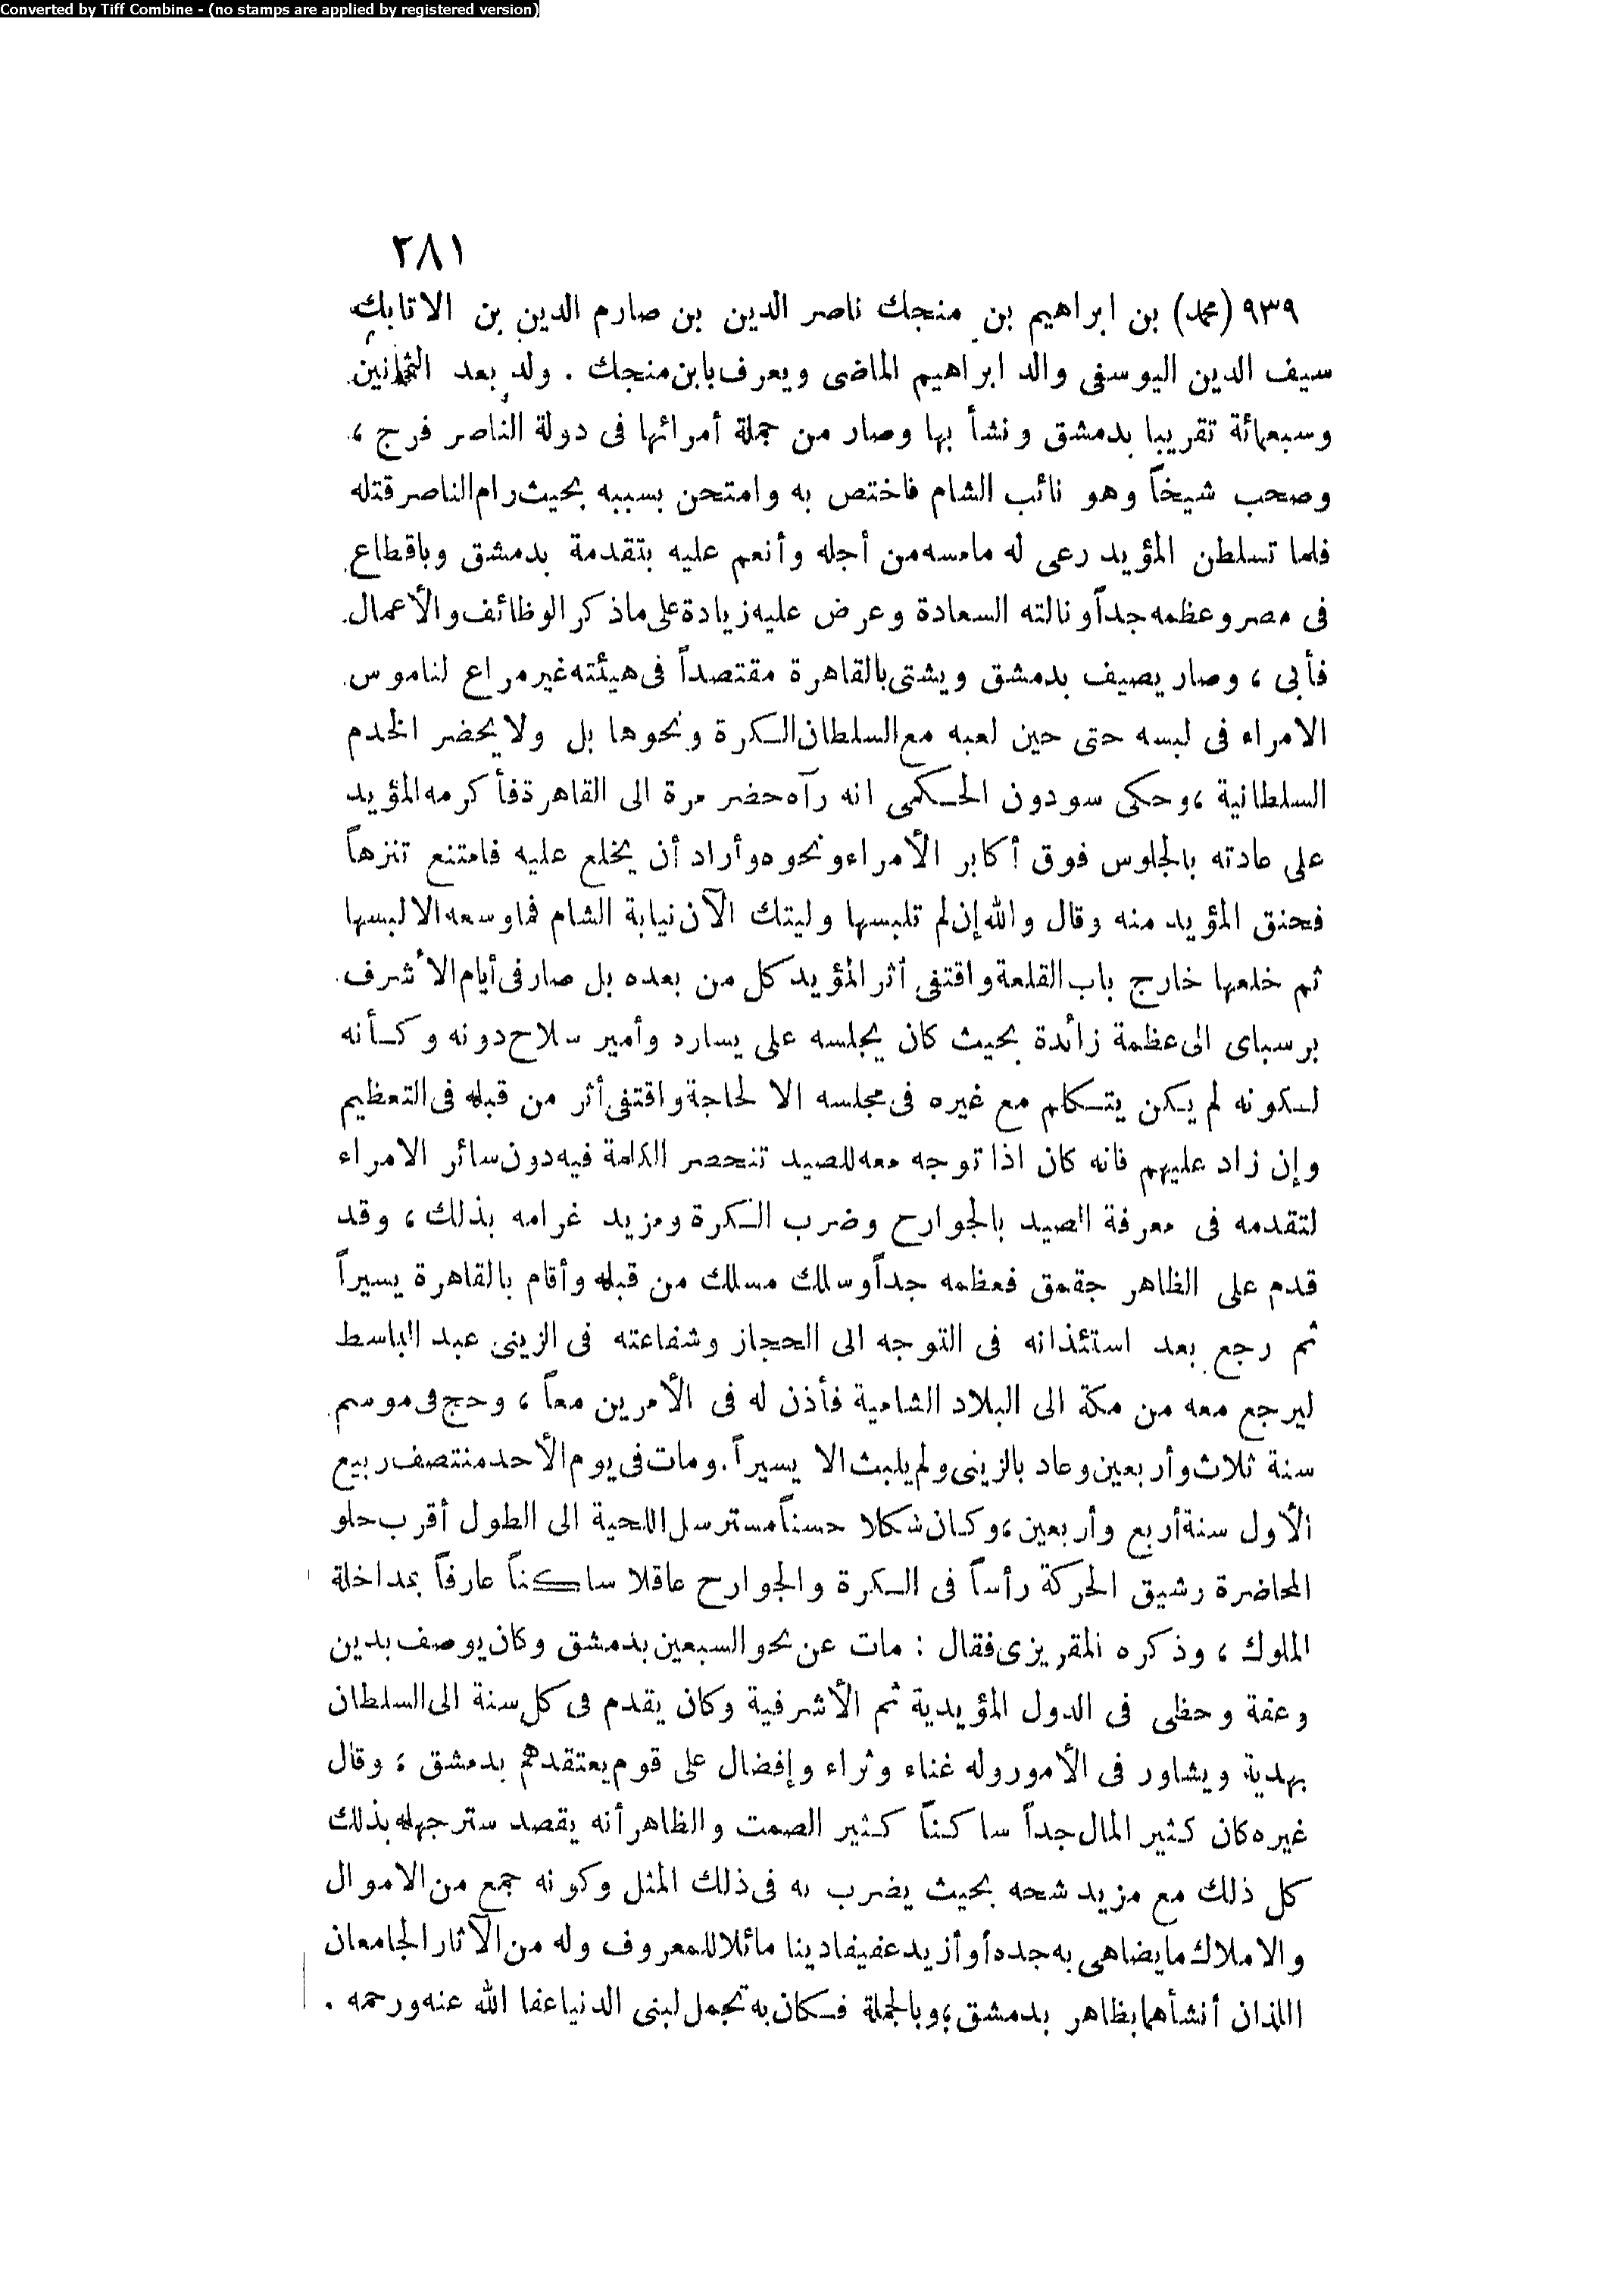 Converted by Tiff Combine - (no stamps are applied by registered version)
٢٨١
٩٣٩ (محمد) بن ابراهيم بن منجك ناصر الدين بن صارم الدين بن الاتابك
سيف الدين اليوسفى والد ابراهيم الماضى ويعرف بابن منجك . ولد بعد الثمانين
وسبعمائة تقريبا بدمشق ونشأ بها وصار من جملة أمرائها فى دولة الناصر فرج ،
وصحب شيخاً وهو نائب الشام فاختص به وامتحن بسببه بحيث رام الناصر قتله
فلما تسلطن المؤيد رعى له مامسه من أجله وأنعم عليه بتقدمة بدمشق وباقطاع
فى مصر وعظمه جداً ونالته السعادة وعرض عليه زيادة على ماذكر الوظائف والأعمال
فأبى ، وصار يصيف بدمشق ويشتى بالقاهرة مقتصداً فى هيئته غير مراع لناموس
الامراء فى لبسه حتى حين لعبه مع السلطان الكرة ونحوها بل ولا يحضر الخدم
السلطانية ، وحكى سودون الحكمى انه رآه حضر مرة الى القاهرة فأكرمه المؤيد
على عادته بالجلوس فوق أكابر الأمراء ونحوه وأراد أن يخلع عليه فامتنع تنزهاً
فحنق المؤيد منه وقال والله إن لم تلبسها وليتك الآن نيابة الشام فما وسعه الا لبسها
ثم خلعها خارج باب القلعة واقتفى أثر المؤيد كل من بعده بل صار فى أيام الأشرف
برسباى الى عظمة زائدة بحيث كان يجلسه على يساره وأمير سلاح دونه وكأنه
لكونه لم يكن يتكلم مع غيره فى مجلسه الا لحاجة واقتفى أثر من قبله فى التعظيم
وإن زاد عليهم فانه كان اذا توجه معه للصيد تنحصر الكلمة فيه دون سائر الامراء
لتقدمه فى معرفة الصيد بالجوارح وضرب الكرة ومزيد غرامه بذلك ، وقد
قدم على الظاهر جقمق فعظمه جداً وسلك مسلك من قبله وأقام بالقاهرة يسيراً
ثم رجع بعد استئذانه فى التوجه الى الحجاز وشفاعته فى الزينى عبد الباسط
ليرجع معه من مكة الى البلاد الشامية فأذن له فى الأمرين معاً ، وحج فى موسم
سنة ثلاث وأربعين وعاد بالزينى ولم يلبث الا يسيراً . ومات فى يوم الأحد منتصف ربيع
الأول سنة أربع وأربعين ، وكان شكلا حسناً مسترسل اللحية الى الطول أقرب حلو
المحاضرة رشيق الحركة رأساً فى الكرة والجوارح عاقلا ساكناً عارفاً بمداخلة
الملوك ، وذكره المقريزى فقال : مات عن نحو السبعين بدمشق وكان يوصف بدين
وعفة وحظى فى الدول المؤيدية ثم الأشرفية وكان يقدم فى كل سنة الى السلطان
بهدية ويشاور فى الأمور وله غناء وثراء وإفضال على قوم يعتقدهم بدمشق ، وقال
غيره كان كثير المال جداً ساكناً كثير الصمت والظاهر أنه يقصد ستر جهله بذلك
كل ذلك مع مزيد شحه بحيث يضرب به فى ذلك المثل وكونه جمع من الاموال
والاملاك مايضاهى به جده أو أزيد عفيفا دينا مائلا للمعروف وله من الآثار الجامعان
اللذان أنشأهما بظاهر بدمشق ، وبالجملة فكان به تجمل لبنى الدنيا عفا الله عنه ورحمه .